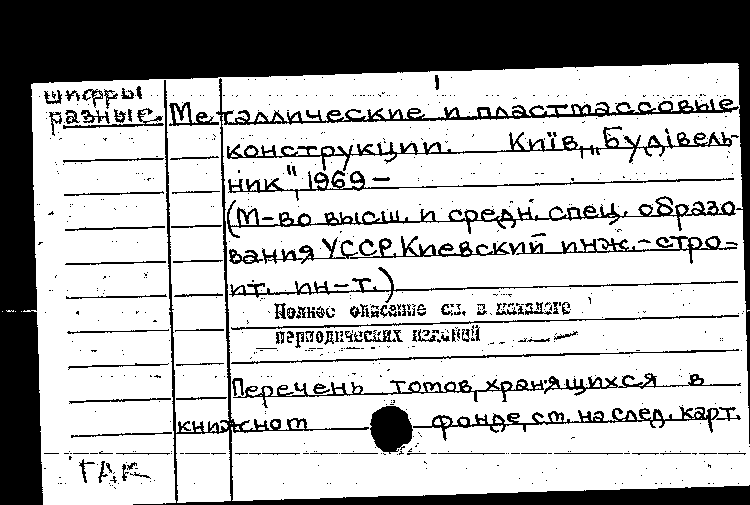 шифры
разные. Металлические и пластмассовые
конструкции. Київ, „Будівель-
ник", 1969 —
(М-во высш. и средн. спец. образо-
вания УССР. Киевский инж.-стро=
ит. ин-т.)
Полное описание см. в каталоге
периодических изданий
Перечень томов, хранящихся в
книжном фонде, см. на след. карт.
ГАК